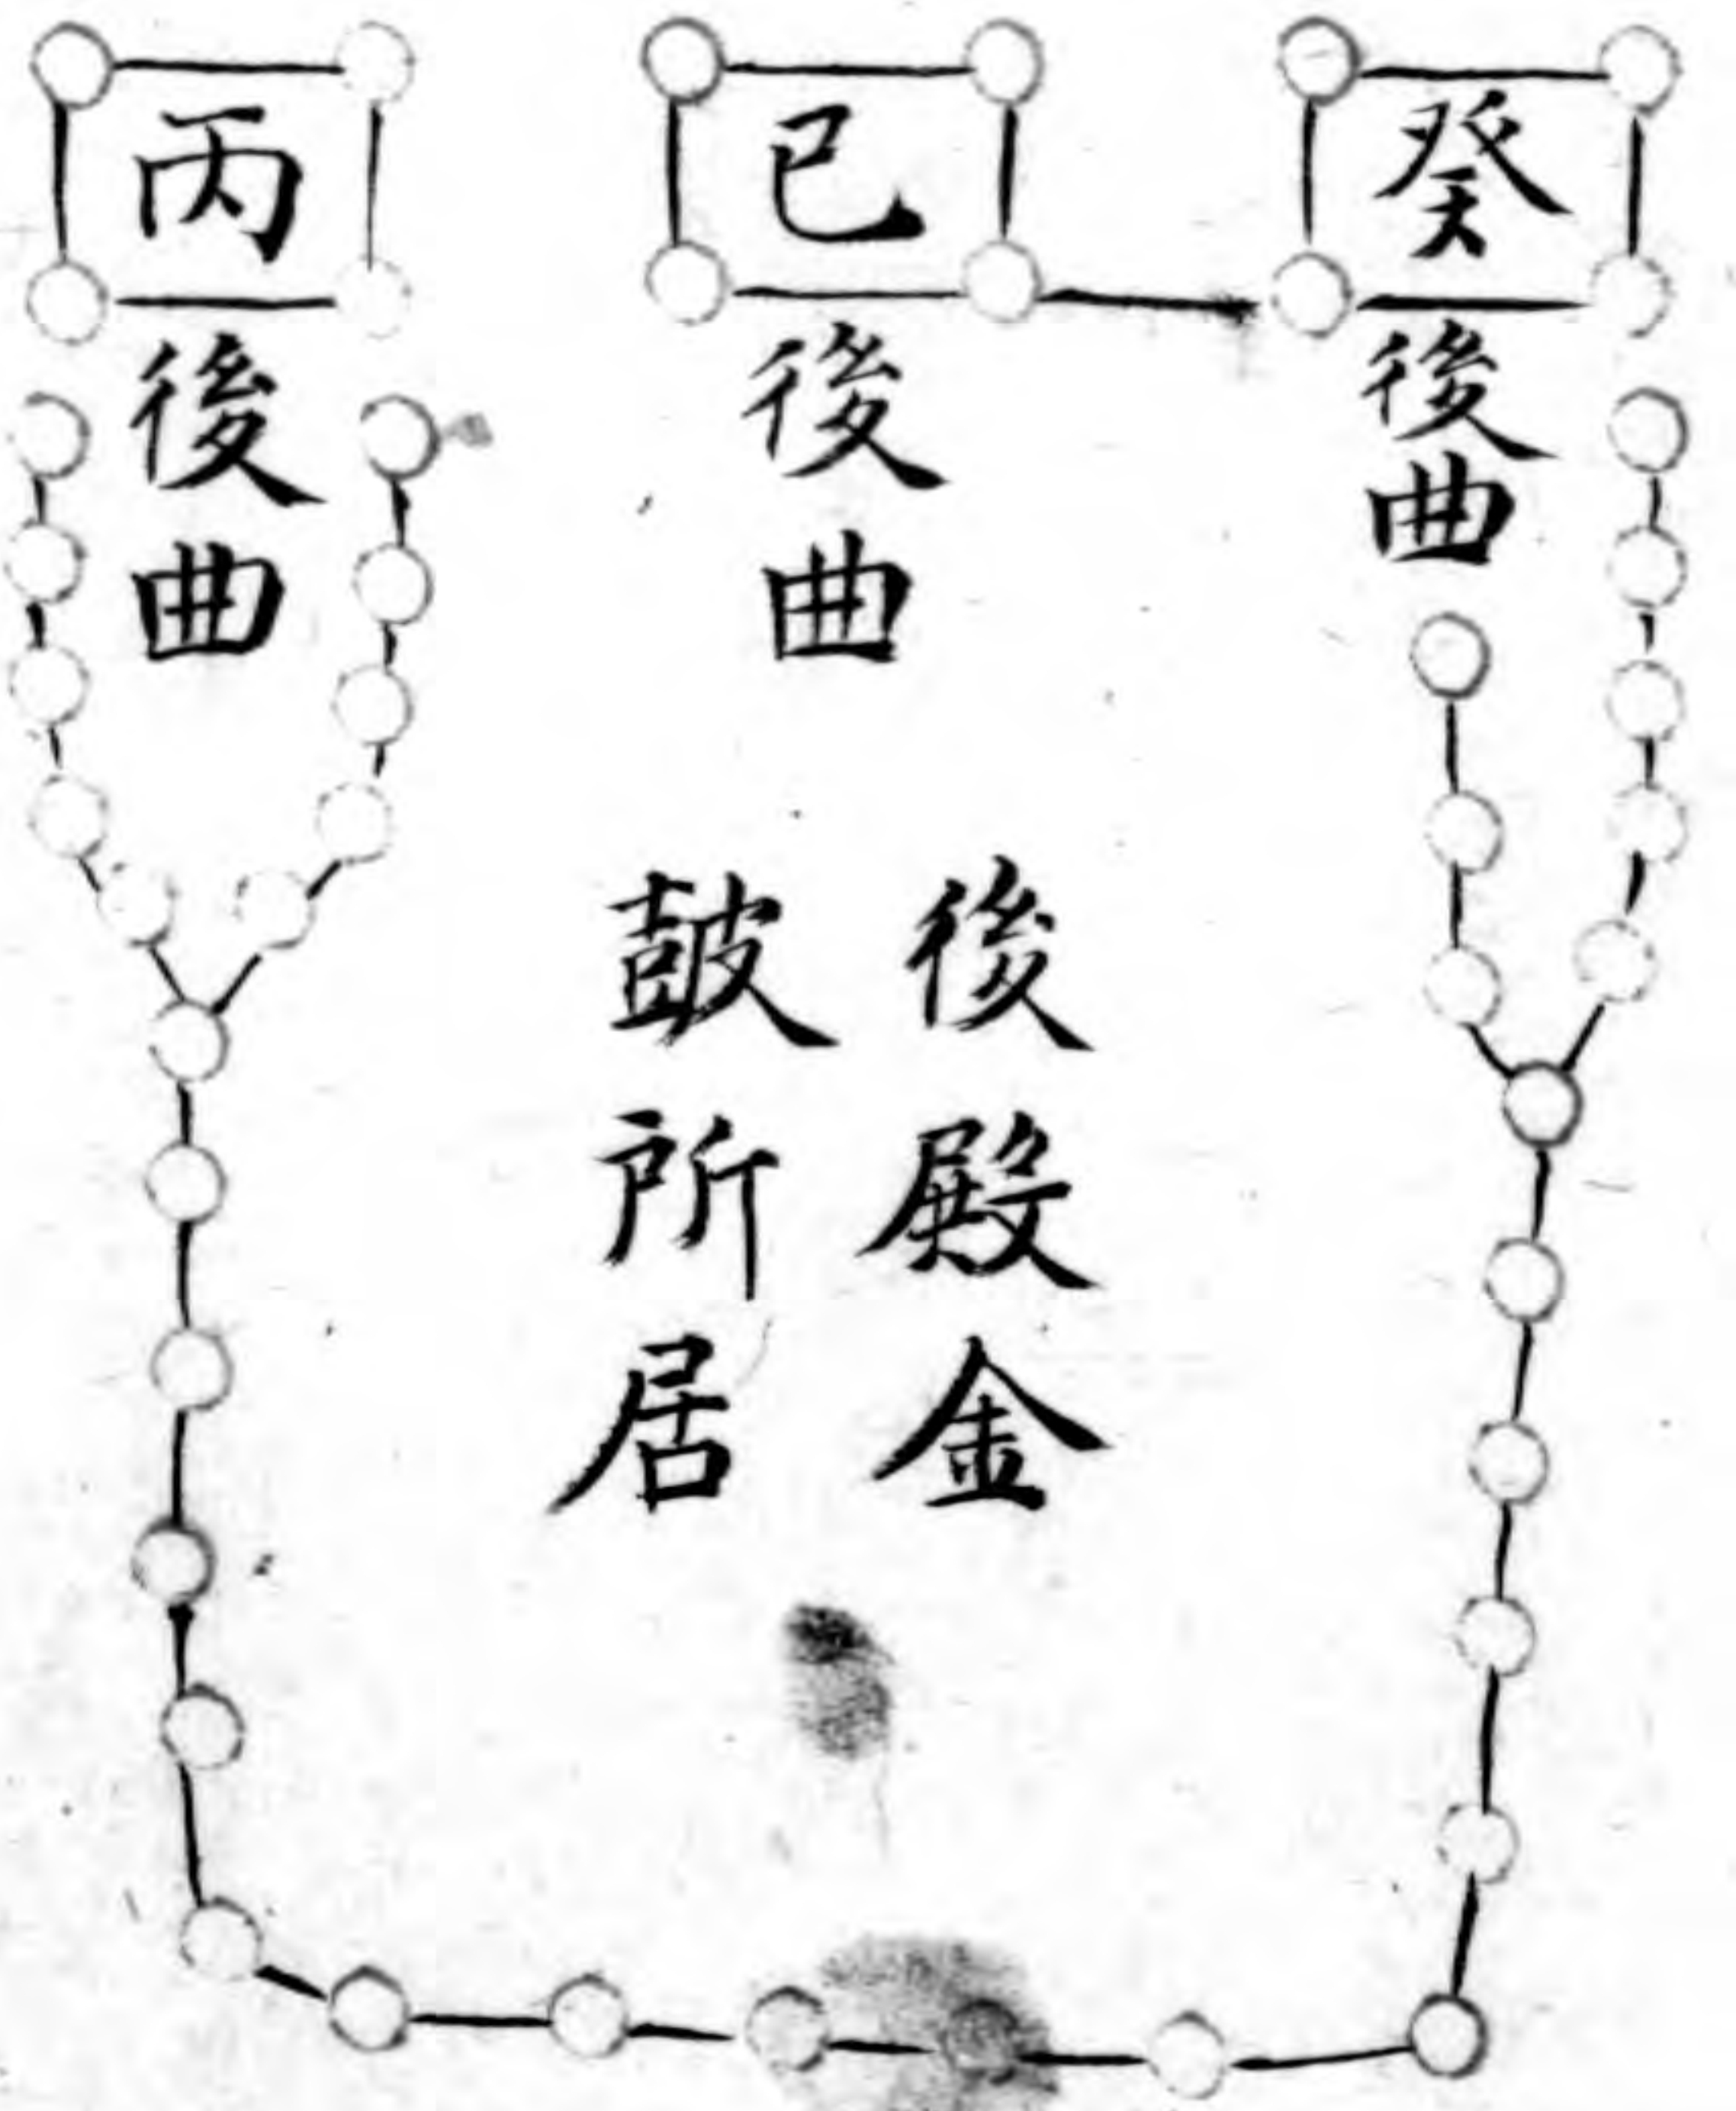 癸後曲
已後曲
丙後曲
後殿金
皷所居